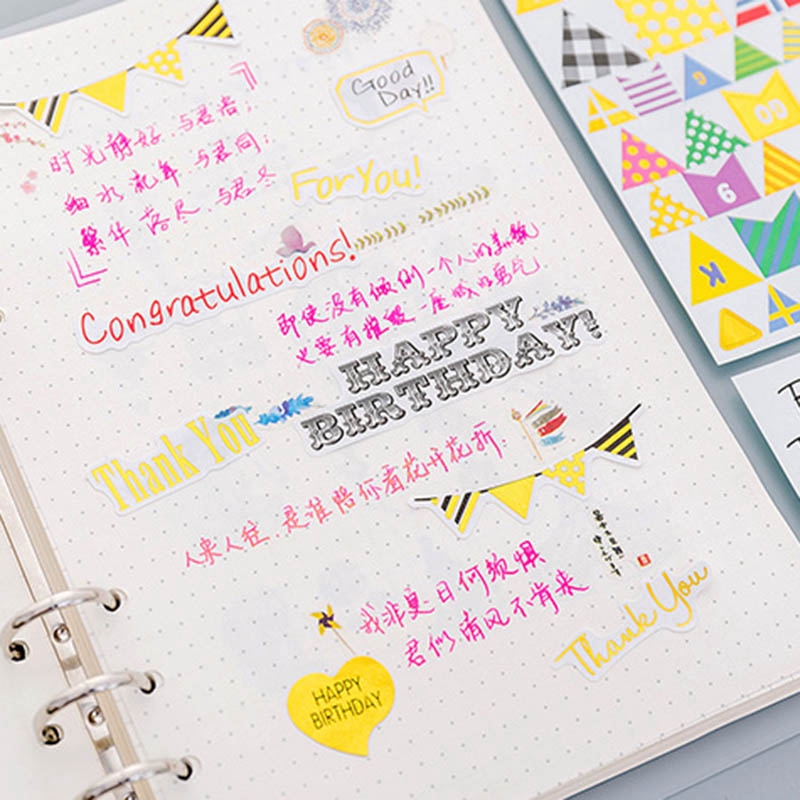 Good
Day!!
时光静好 与君
细水流年 与君同;
繁华落尽 与君
For You!
Congratulations!
即使没有倾倒一个人的美貌
也要有摧毁一座城的勇气
HAPPY
BIRTHDAY!
Thank You
人来人往,是谁陪你看花开花折.
我非夏日何须惧
君似清风不肯来
Thank You
HAPPY
BIRTHDAY
9
K